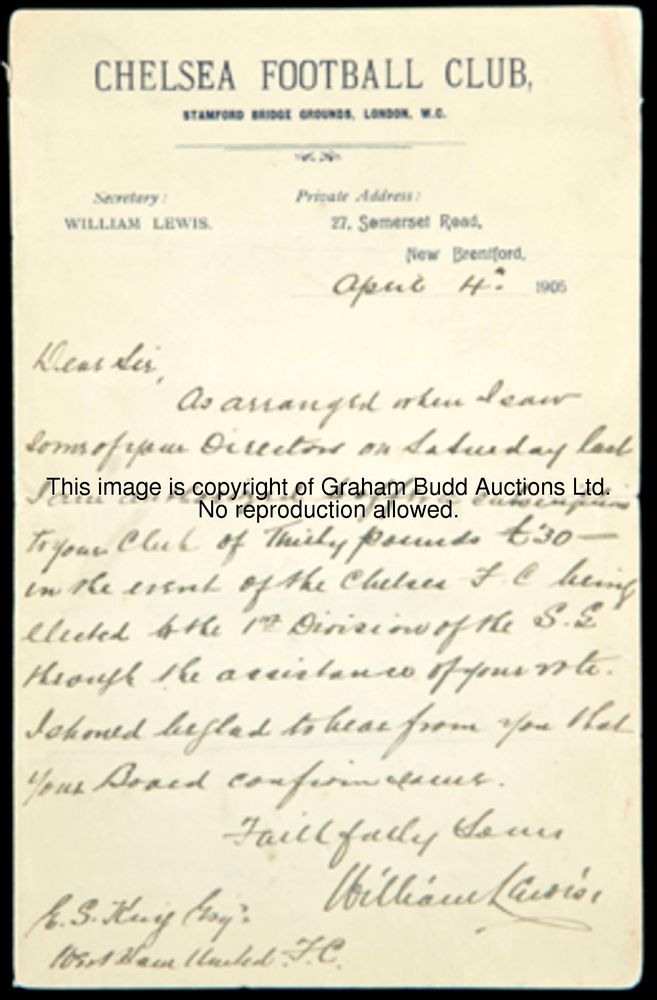 CHELSEA FOOTBALL CLUB,
STAMFORD BRIDGE GROUNDS, LONDON, W.C.
Secretary: Private Address:
WILLIAM LEWIS. 27, Somerset Road,
New Brentford,
April 4th 1905
Dear Sir,
As arranged when I saw
some of your Directors on Saturday last
This image is copyright of Graham Budd Auctions Ltd.
No reproduction allowed.
I am
to your Club of Thirty pounds £30 —
in the event of the Chelsea F. C being
elected to the 1st Division of the S. L
through the assistance of your vote.
I should be glad to hear from you that
your Board confirm same.
Faithfully Yours
William Lewis.
E. S. King Esq.
West Ham United. F.C.